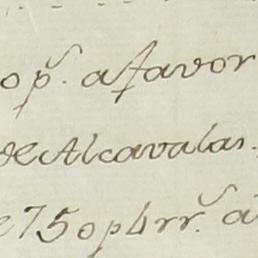 op.r a favor
de Alcavalas.
e 750 p.4 rr.s a